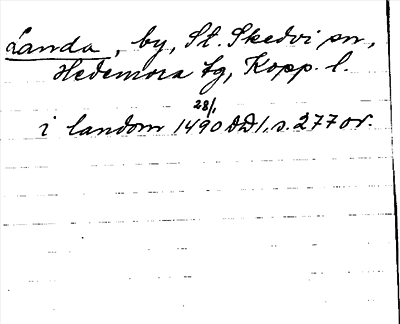 Landa, by, St. Skedvi sn,
Hedemora tg, Kopp. l.
28/1
i landom 1490 DD 1. s. 277 or.